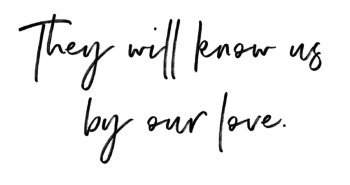 They will know us
by our love.